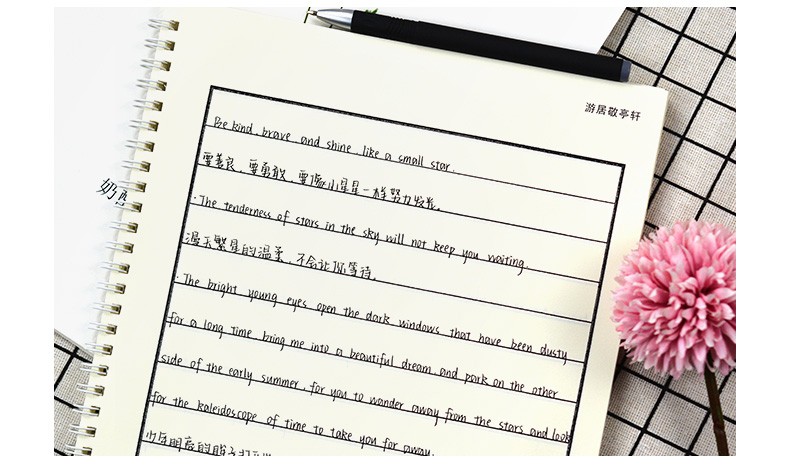 游居敬亭轩
奶
Be kind, brave and shine like a small star.
要善良，要勇敢，要像小星星一样努力发光。
·The tenderness of stars in the sky will not keep you waiting.
漫天繁星的温柔，不会让你等待。
·The bright young eyes open the dark windows that have been dusty
for a long time bring me into a beautiful dream, and park on the other
side of the early summer, for you to wander away from the stars and look
for the kaleidoscope of time to take you far away.
少年明亮的眸子